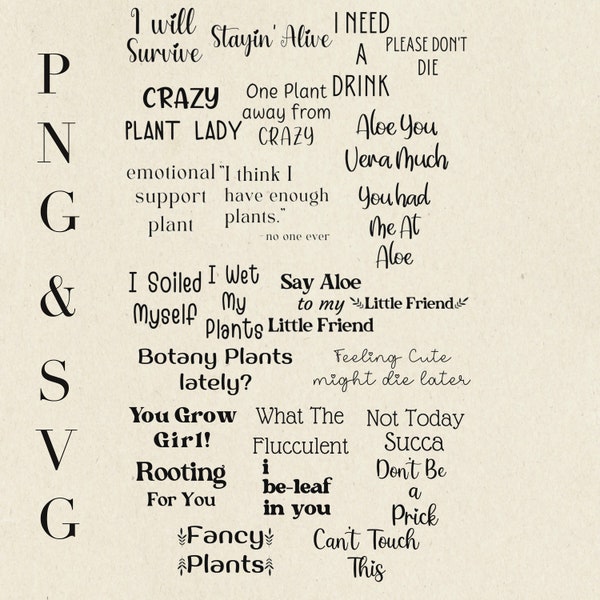 PNG & SVG
I will
Survive
Stayin' Alive
I NEED
A
DRINK
PLEASE DON'T
DIE
CRAZY
PLANT LADY
One Plant
away from
CRAZY
Aloe You
Vera Much
emotional
support
plant
"I think I
have enough
plants."
- no one ever
You had
Me At
Aloe
I Soiled
Myself
I Wet
My
Plants
Say Aloe
to my
Little Friend
Little Friend
Botany Plants
lately?
Feeling Cute
might die later
You Grow
Girl!
What The
Flucculent
Not Today
Succa
Rooting
For You
i
be-leaf
in you
Don't Be
a
Prick
Fancy
Plants
Can't Touch
This